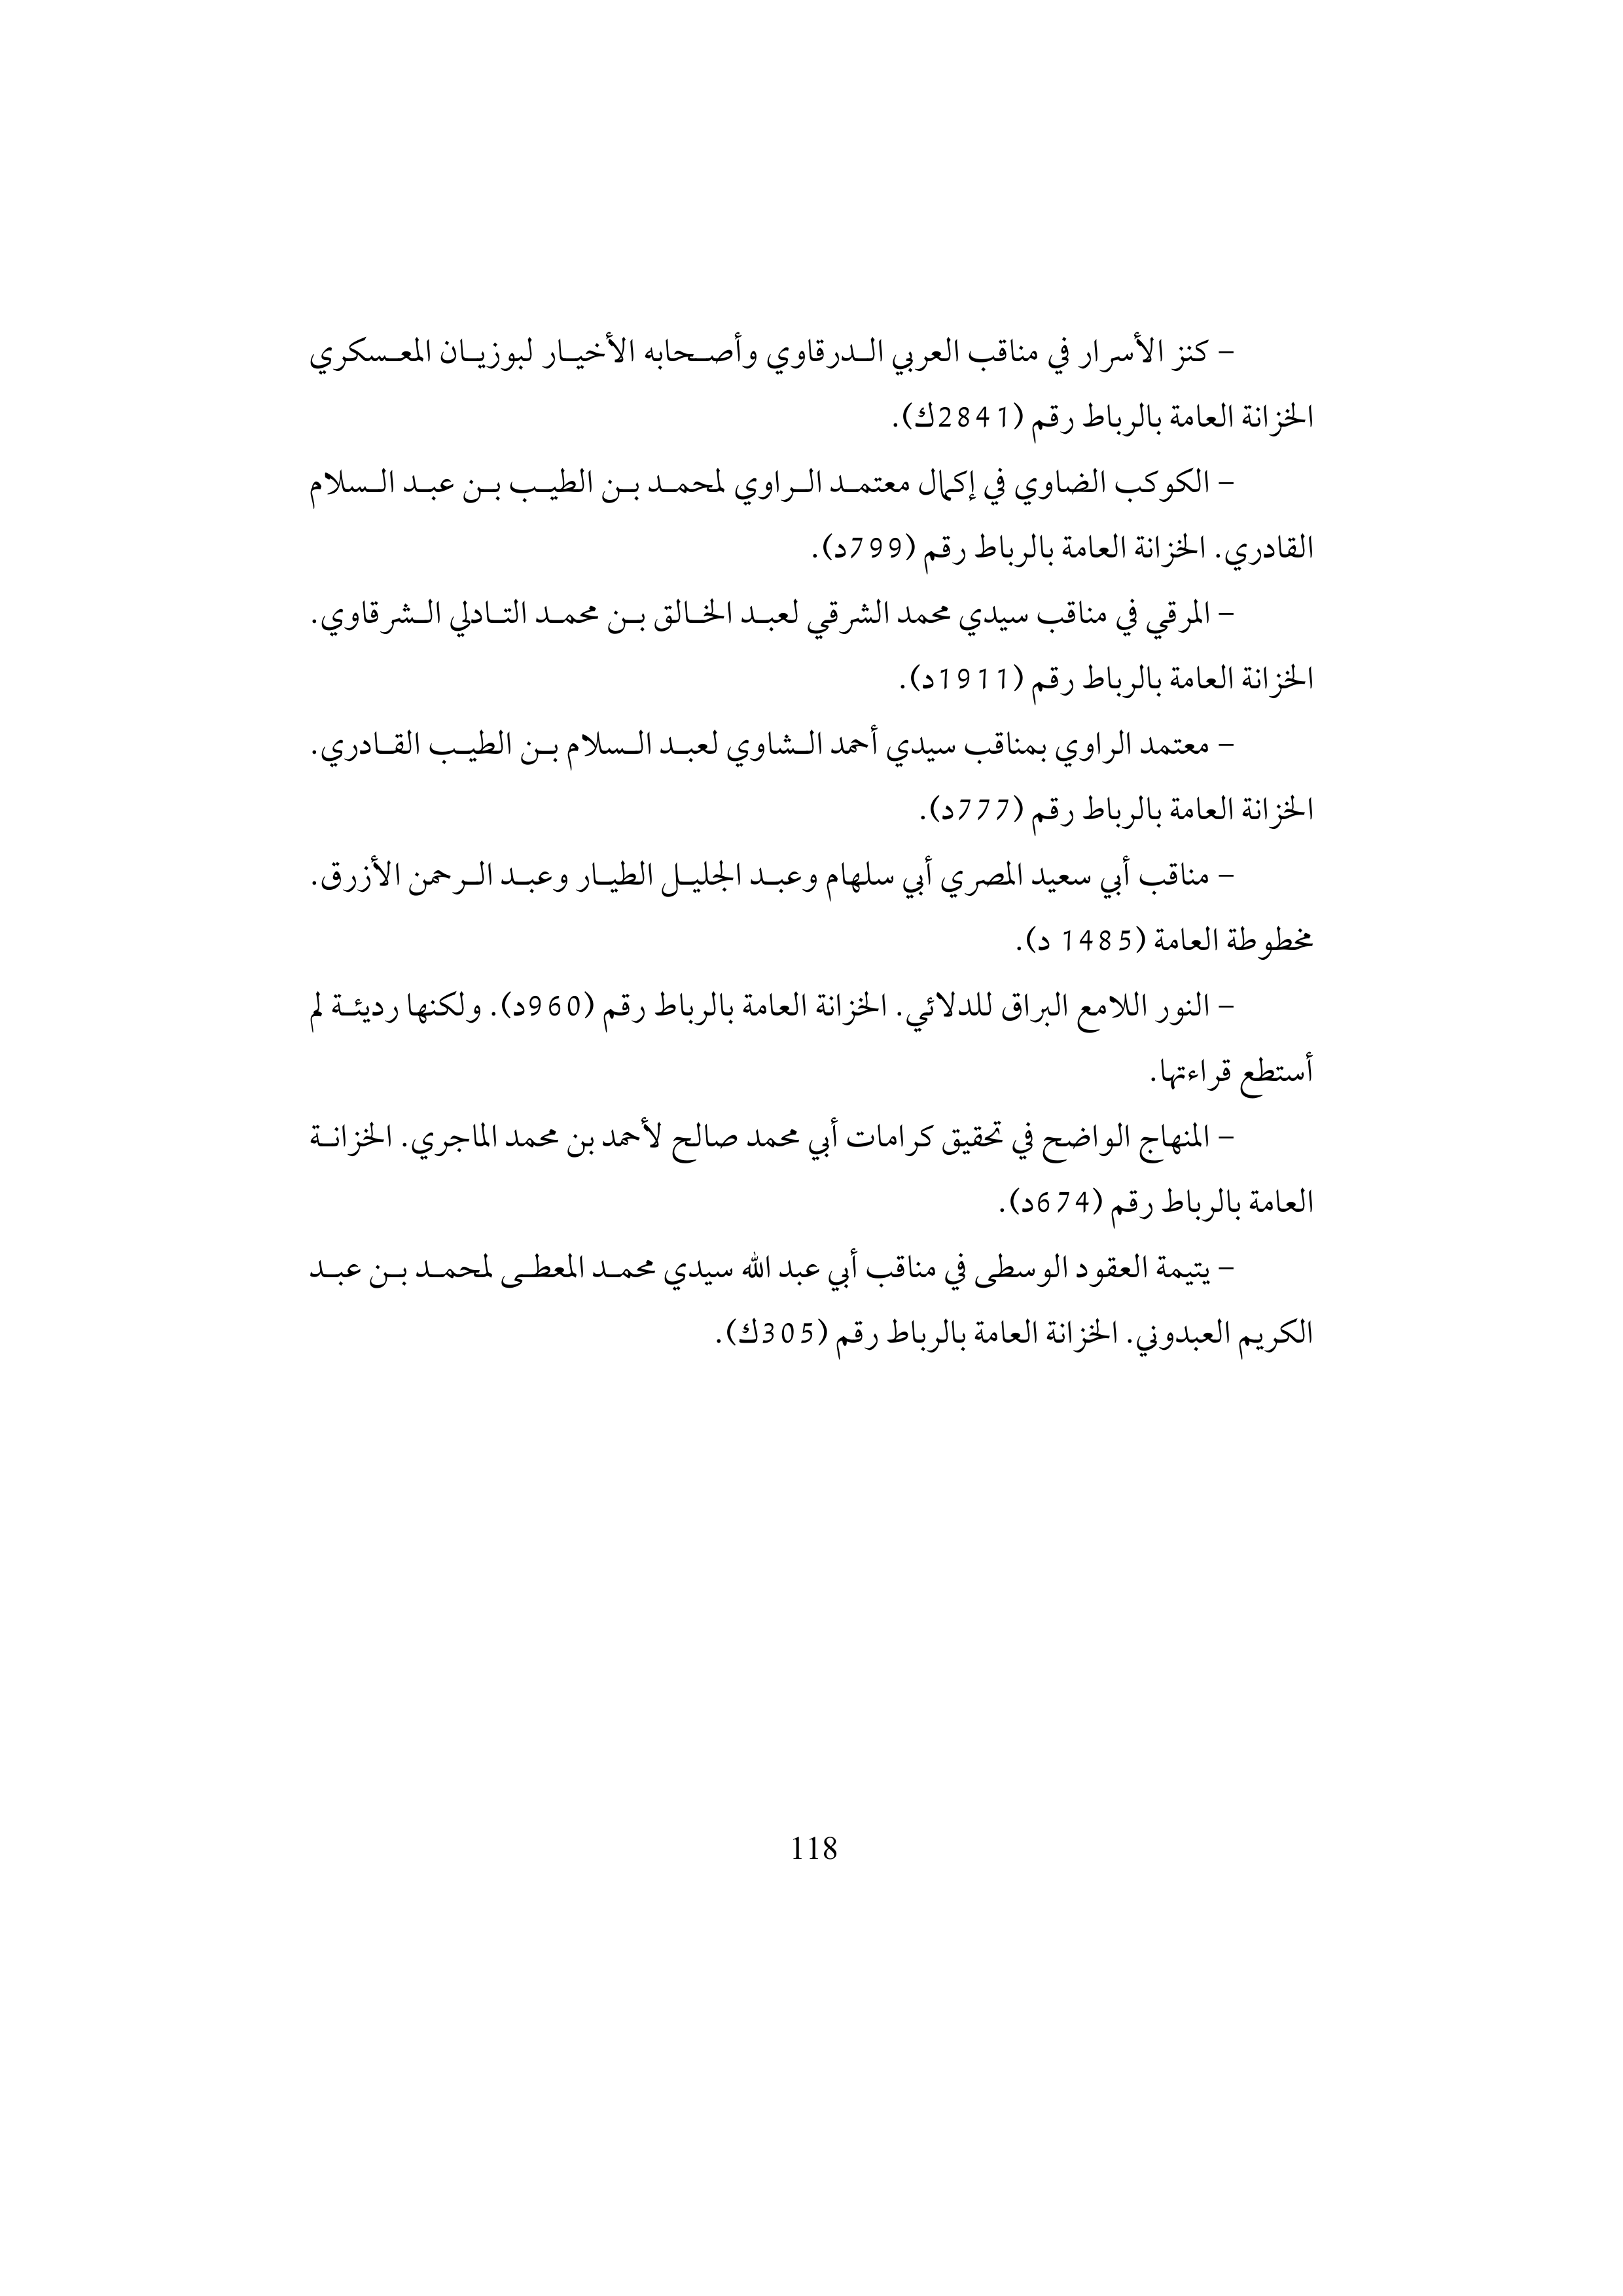 – كنز الأسرار في مناقب العربي الدرقاوي وأصحابه الأخيار لبوزيان المعسكري
الخزانة العامة بالرباط رقم (2841ك).
– الكوكب الضاوي في إكمال معتمد الراوي لمحمد بن الطيب بن عبد السلام
القادري. الخزانة العامة بالرباط رقم (799د).
– المرقي في مناقب سيدي محمد الشرقي لعبد الخالق بن محمد التادلي الشرقاوي.
الخزانة العامة بالرباط رقم (1911د).
– معتمد الراوي بمناقب سيدي أحمد الشاوي لعبد السلام بن الطيب القادري.
الخزانة العامة بالرباط رقم (777د).
– مناقب أبي سعيد المصري أبي سلهام وعبد الجليل الطيار وعبد الرحمن الأزرق.
مخطوطة العامة (1485 د).
– النور اللامع البراق للدلائي. الخزانة العامة بالرباط رقم (960د). ولكنها رديئة لم
أستطع قراءتها.
– المنهاج الواضح في تحقيق كرامات أبي محمد صالح لأحمد بن محمد الماجري. الخزانة
العامة بالرباط رقم (674د).
– يتيمة العقود الوسطى في مناقب أبي عبد الله سيدي محمد المعطى لمحمد بن عبد
الكريم العبدوني. الخزانة العامة بالرباط رقم (305ك).
118